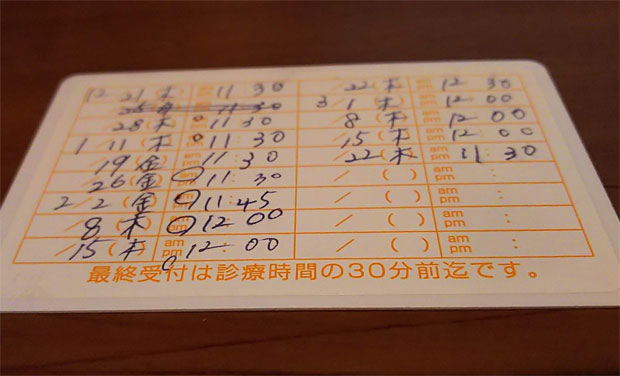 12/21(木) am pm 11:30
11:30
/28(木) am pm 11:30
1/11(木) am pm 11:30
/19(金) am pm 11:30
/26(金) am pm 11:30
2/2(金) am pm 11:45
/8(木) am pm 12:00
/15(木) am pm 12:00
/22(木) am pm 12:30
3/1(木) am pm 12:00
/8(木) am pm 12:00
/15(木) am pm 12:00
/22(木) am pm 11:30
/ ( ) am pm :
/ ( ) am pm :
/ ( ) am pm :
/ ( ) am pm :
最終受付は診療時間の30分前迄です。